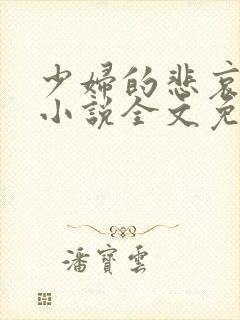 少婦的悲哀
小說全文免
潘寶雲